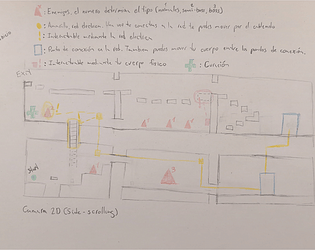 : Enemigos, el número determina el tipo (
: Amarillo, red eléctrica. Una vez te conectas a la red te puedes mover por el cableado
: Interactuable mediante la red eléctrica
: Punto de conexión a la red. También puedes mover tu cuerpo entre los puntos de conexión.
: Interactuable mediante tu cuerpo físico
: Curación
Exit
Start
Cámara 2D (Side-scrolling)